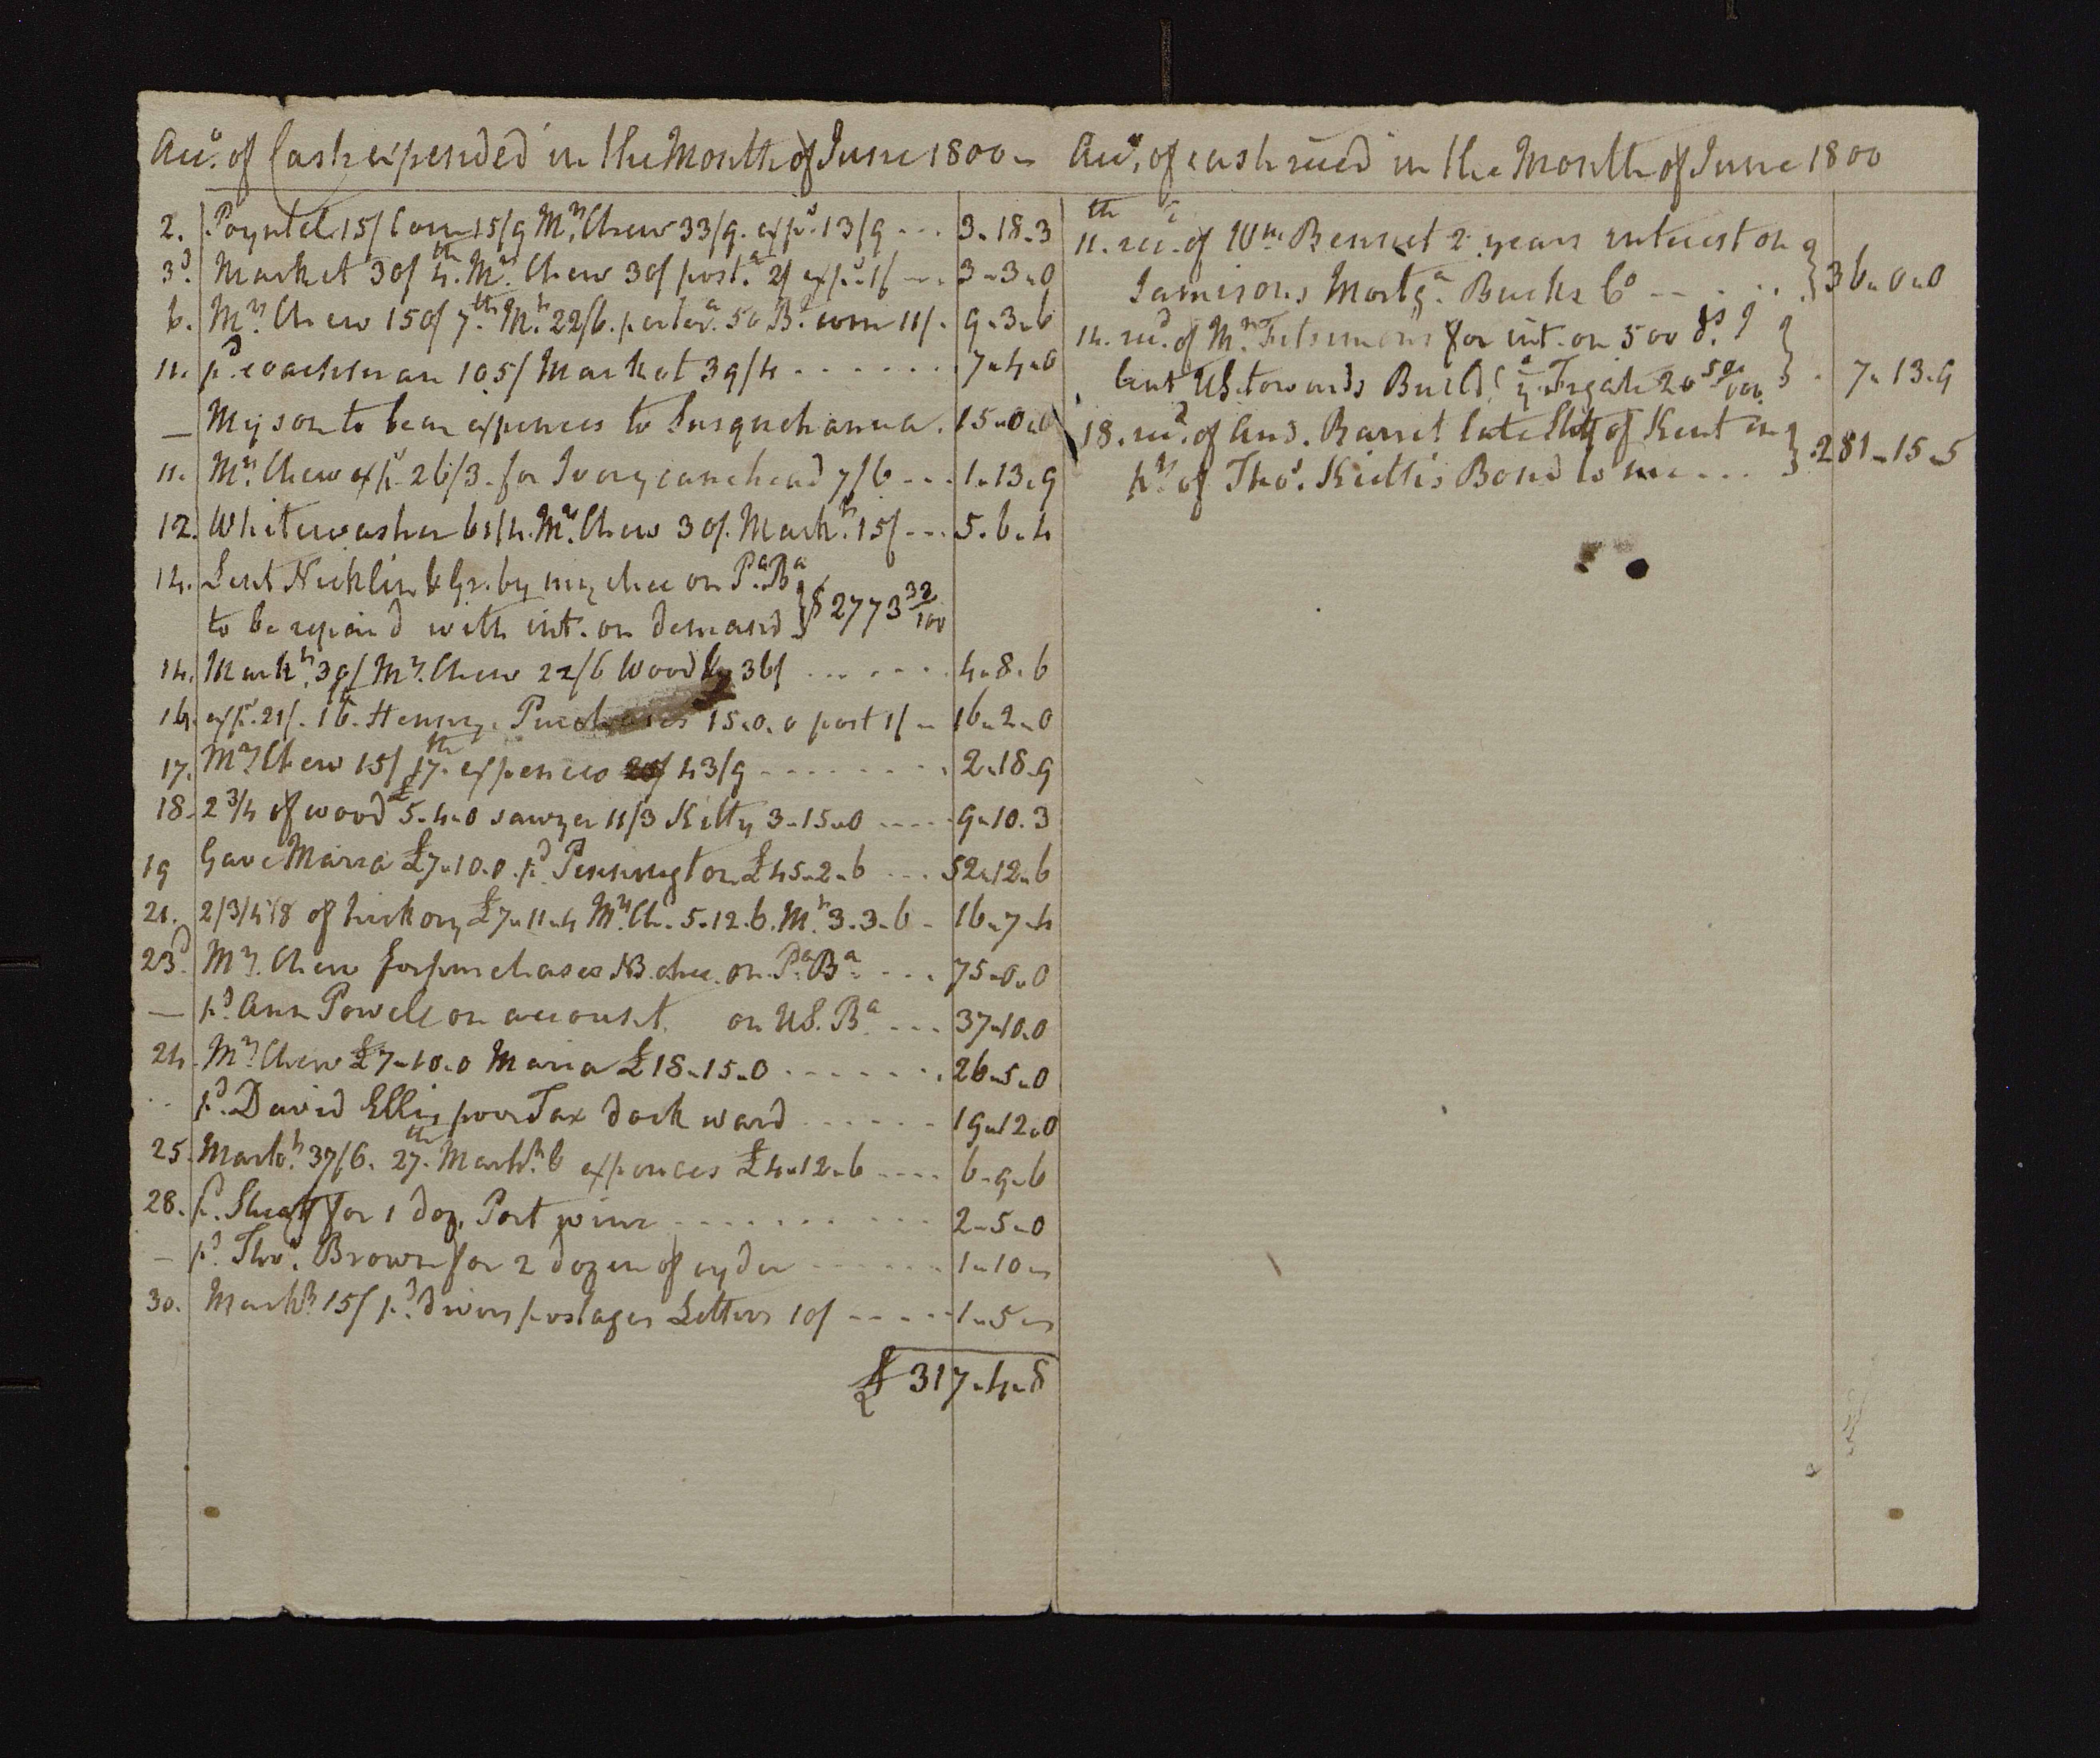 Acco. of Cash expended in the Month of June 1800
2. Poyntel 15/ Corn 15/9 Mrs. Chew 33/9. exps. 13/9 ... 3.18.3
3d. Market 30/ 4th. Mrs. Chew 30/ posta. 2/ exps. 1/ ... 3.3.0
6. Mrs. Chew 150/ 7th. Mt. 22/6. corn 11/. 9.3.6
11. pd. coachman 105/ Market 39/4 ...... 7.4.0
— My son to bear expences to Susquehanna. 15.0.0
11. Mrs. Chew exps. 26/3. for Ivory canehead 7/6 ... 1.13.9
12. Whitewasher 61/4. Mrs. Chew 30/. Markt. 15/ ... 5.6.4
14. Lent Nicklin & Gr. by my chec on Pa. Ba
to be repaid with int. on demand } $ 2773 33/100
14. Markt. 30/ Mrs. Chew 22/6 Wood 36/ ...... 4.8.6
16. exps. 21/. 16. Henry. Purchases 15.0.0 post 1/ 16.2.0
17. Mrs. Chew 15/ 17th. expences 43/9 ....... 2.18.9
18. 2 3/4 of wood £5.4.0 sawyer 11/3 Kitty 3.15.0 .... 9.10.3
19 Gave Maria £7.10.0. pd. Pennington £45.2.6 ... 52.12.6
21. 2/3/4/8 of hickory £7.11.4 Mrs. Ch. 5.12.6. Mt. 3.3.6 - 16.7.4
23d. Mrs. Chew for purchases NB. chec. on Pa. Ba. ... 75.0.0
— pd. Ann Powell on account. on US. Ba. ... 37.10.0
24. Mrs. Chew £7.10.0 Maria £18.15.0 ....... 26.5.0
.. pd. David Ellis poor Tax dock ward ...... 19.12.0
25. Markt. 37/6. 27th. Markt. 6 expences £4.12.6 .... 6.9.6
28. pd. for 1 doz. Port wine .......... 2.5.0
— pd. Thos. Brown for 2 dozen of cyder ...... 1.10
30. Markt. 15/ pd. divers postages Letters 10/ ..... 1.5
£ 317.4.8
Acco. of cash recd in the Month of June 1800
11th. rec. of Wm Bennet 2 years interest on
Jamisons Mortga. Bucks Co ..... } 36.0.0
14. recd. of Mr. Fitsimons for int. on 500 ds.
lent US. towards Build. a Frigate 20 50/100 } 7.13.9
18. recd. of And. Barret late Shff of Kent on
pt. of Thos. Bond to me ... } 281.15.5